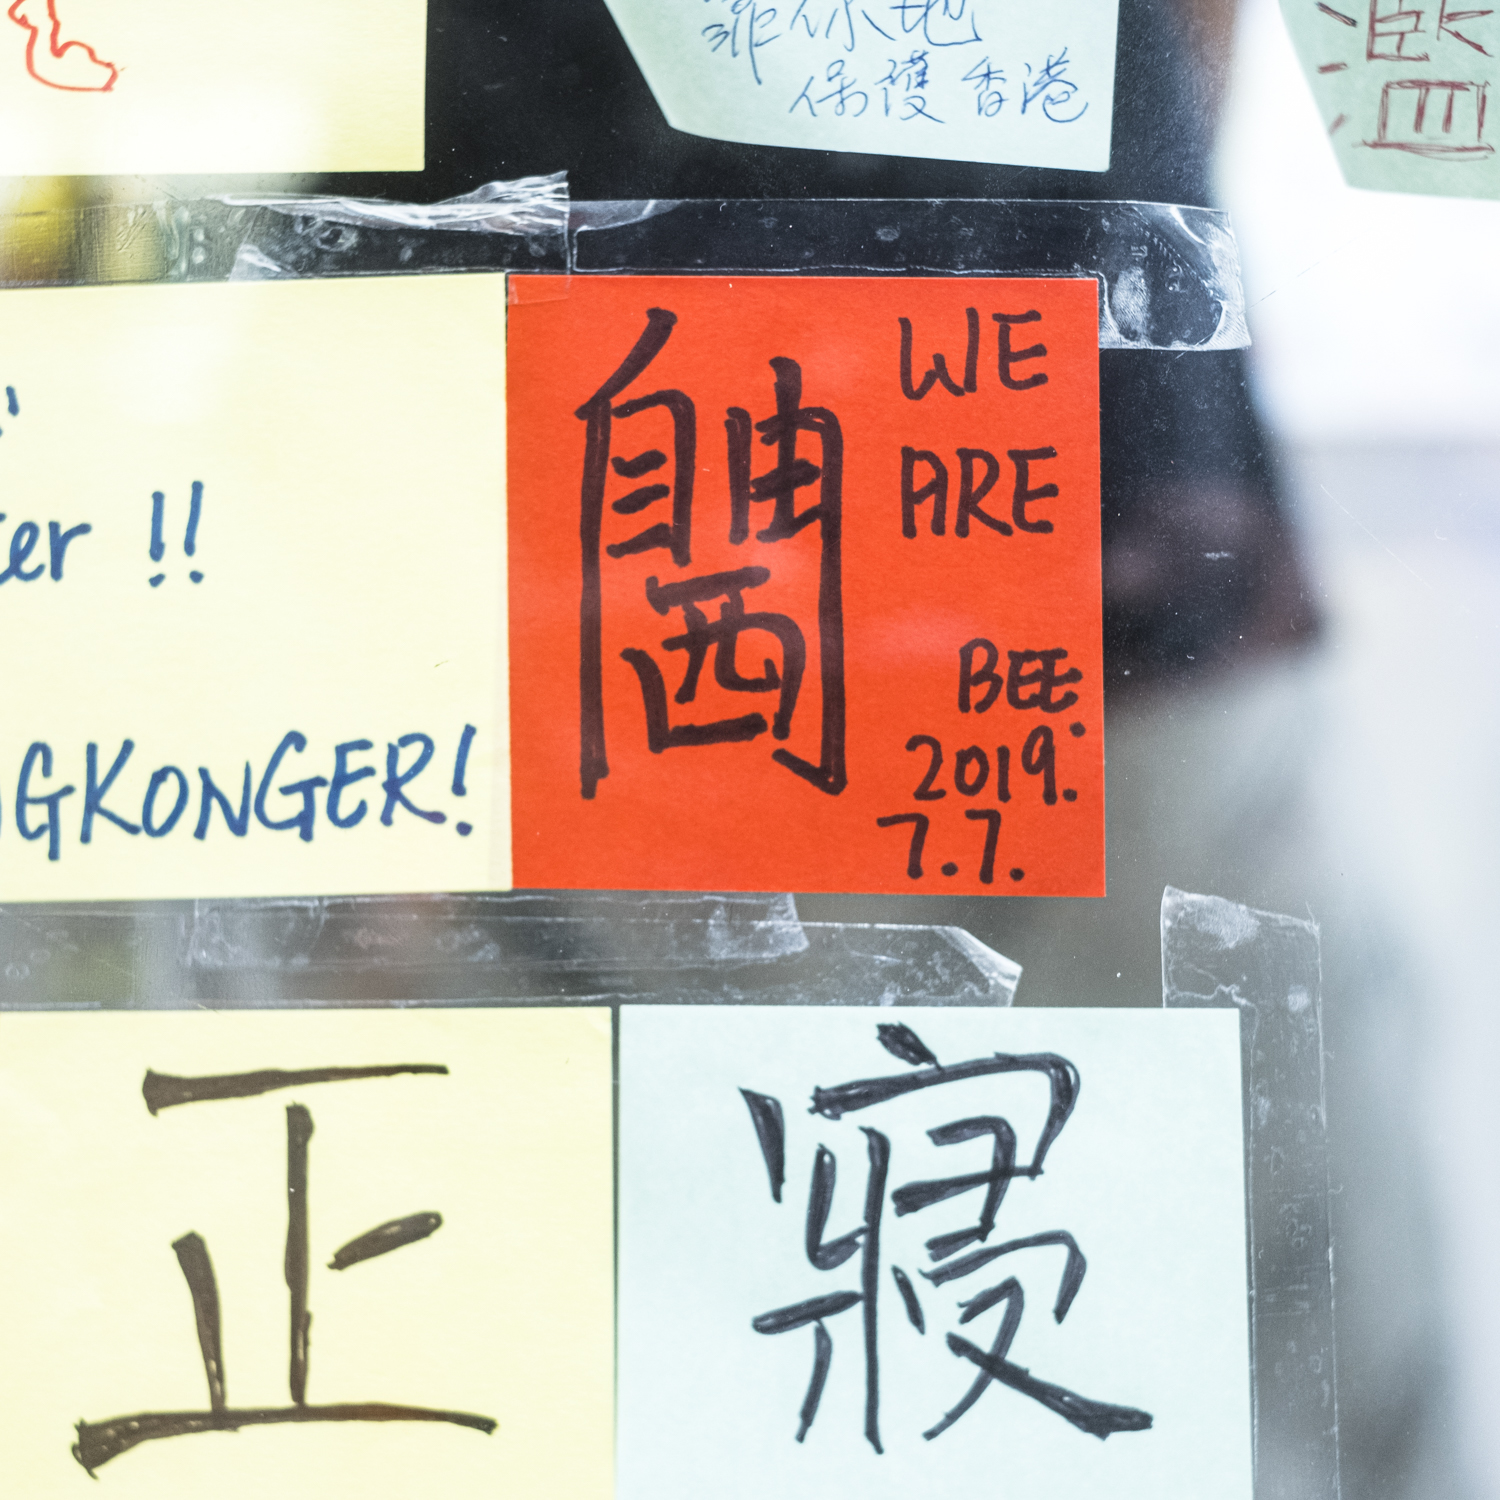 靠你地
保護香港
濫
ter !!
GKONGER!
自由閪
WE
ARE
BEE
2019.
7.7.
正
寢